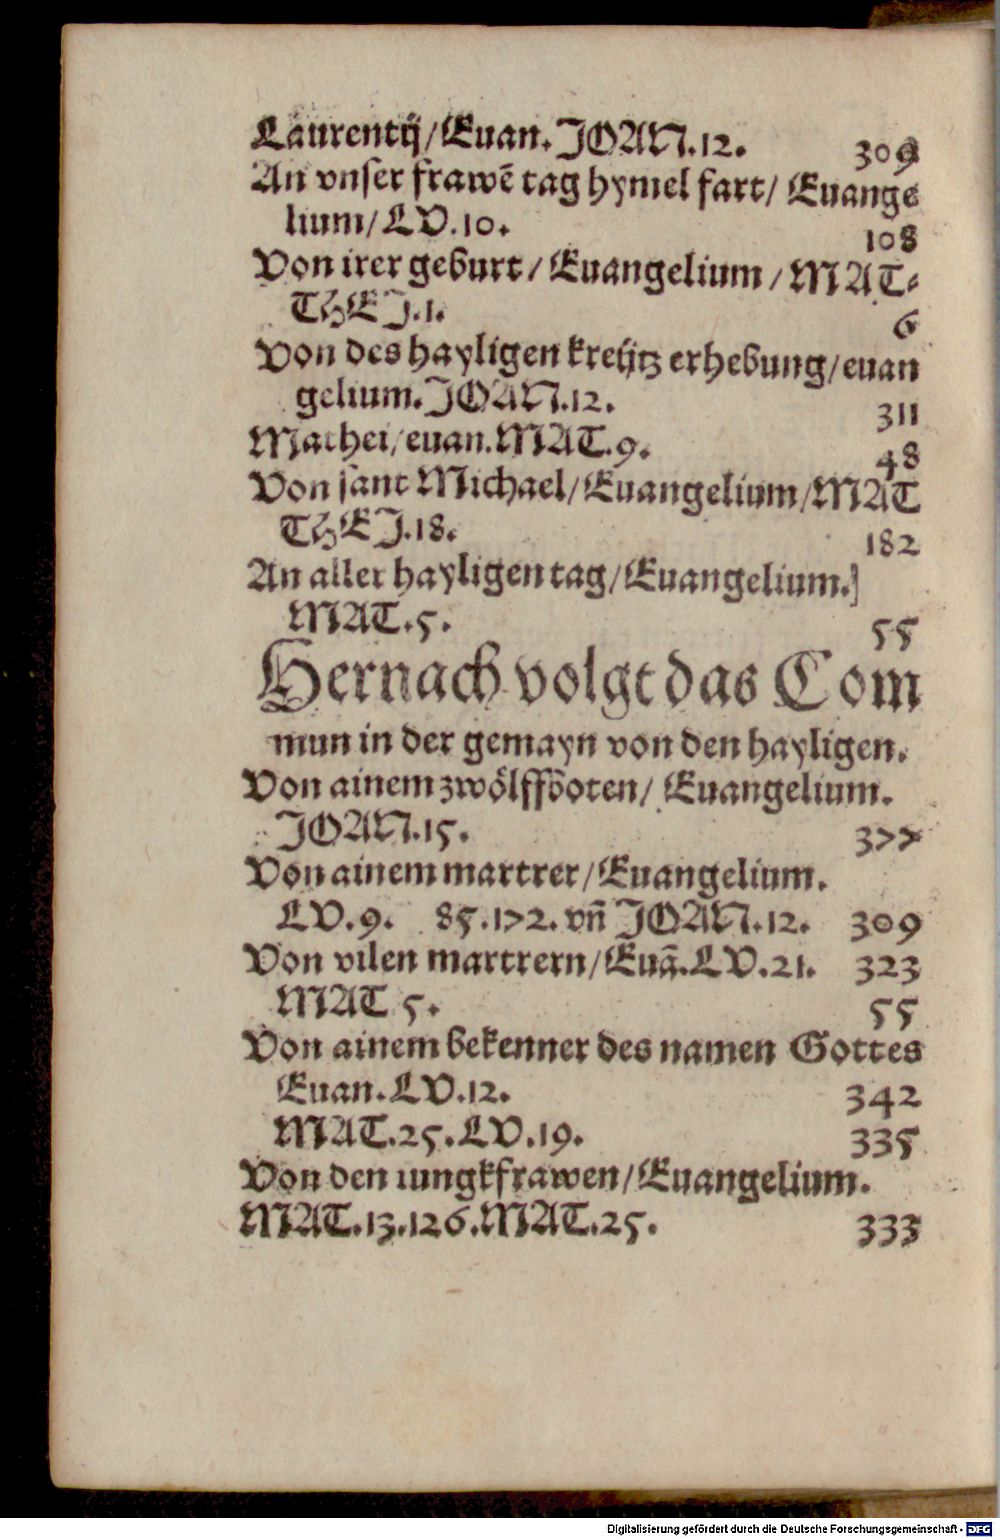 Laurentij/Euan. JOAN.12. 309
An vnser frawē tag hymel fart/ Euange⸗
lium/LV.10. 108
Von irer geburt/Euangelium/MAT⸗
THEJ.1. 6
Von des hayligen kreijtz erhebung/euan
gelium. JOAN.12. 311
Mathei/euan.MAT.9. 48
Von sant Michael/Euangelium/MAT
THEJ.18. 182
An aller hayligen tag/Euangelium.]
MAT.5. 55
Hernach volgt das Com
mun in der gemayn von den hayligen.
Von ainem zwölffboten/ Euangelium.
JOAN.15. 377
Von ainem martrer/Euangelium.
LV.9. 85.172. vñ JOAN.12. 309
Von vilen martrern/Euā.LV.21. 323
MAT 5. 55
Von ainem bekenner des namen Gottes
Euan.LV.12. 342
MAT.25.LV.19. 335
Von den iungkfrawen/Euangelium.
MAT.13.126.MAT.25. 333
Digitalisierung gefördert durch die Deutsche Forschungsgemeinschaft - DFG